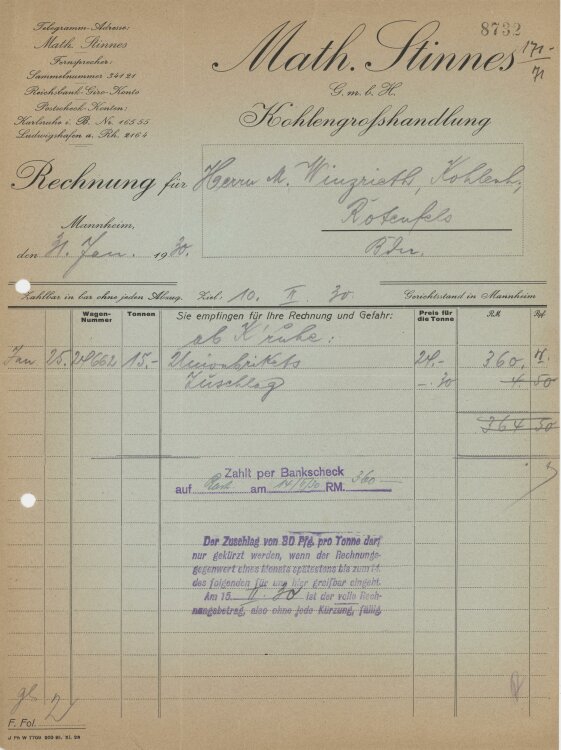 Telegramm-Adresse:
Math. Stinnes
Fernsprecher:
Sammelnummer 341 21
Reichsbank-Giro-Konto
Postscheck-Konten:
Karlsruhe i. B. No. 165 55
Ludwigshafen a. Rh. 2164
8732
171.-
71
Math. Stinnes
G. m. b. H.
Kohlengroßhandlung
Rechnung für
Herrn M. Winzrieth, Kohlenh.,
Rotenfels
Bdn.
Mannheim,
den 31. Jan. 1930.
Zahlbar in bar ohne jeden Abzug. Ziel: 10. II. 30 Gerichtsstand in Mannheim
Wagen-Nummer Tonnen Sie empfingen für Ihre Rechnung und Gefahr: Preis für die Tonne RM. Pf.
ab K'ruhe:
Jan 25. 28662 15.- Unionbrikets 24.- 360.
Zuschlag -.30 4 50
364 50
Zahlt per Bankscheck
auf am 14/II/30 RM. 360.-
Der Zuschlag von 30 Pfg. pro Tonne darf
nur gekürzt werden, wenn der Rechnungs-
gegenwert eines Monats spätestens bis zum 14.
des folgenden für uns hier greifbar eingeht.
Am 15. II. 30 ist der volle Rech-
nungsbetrag, also ohne jede Kürzung, fällig.
F. Fol.